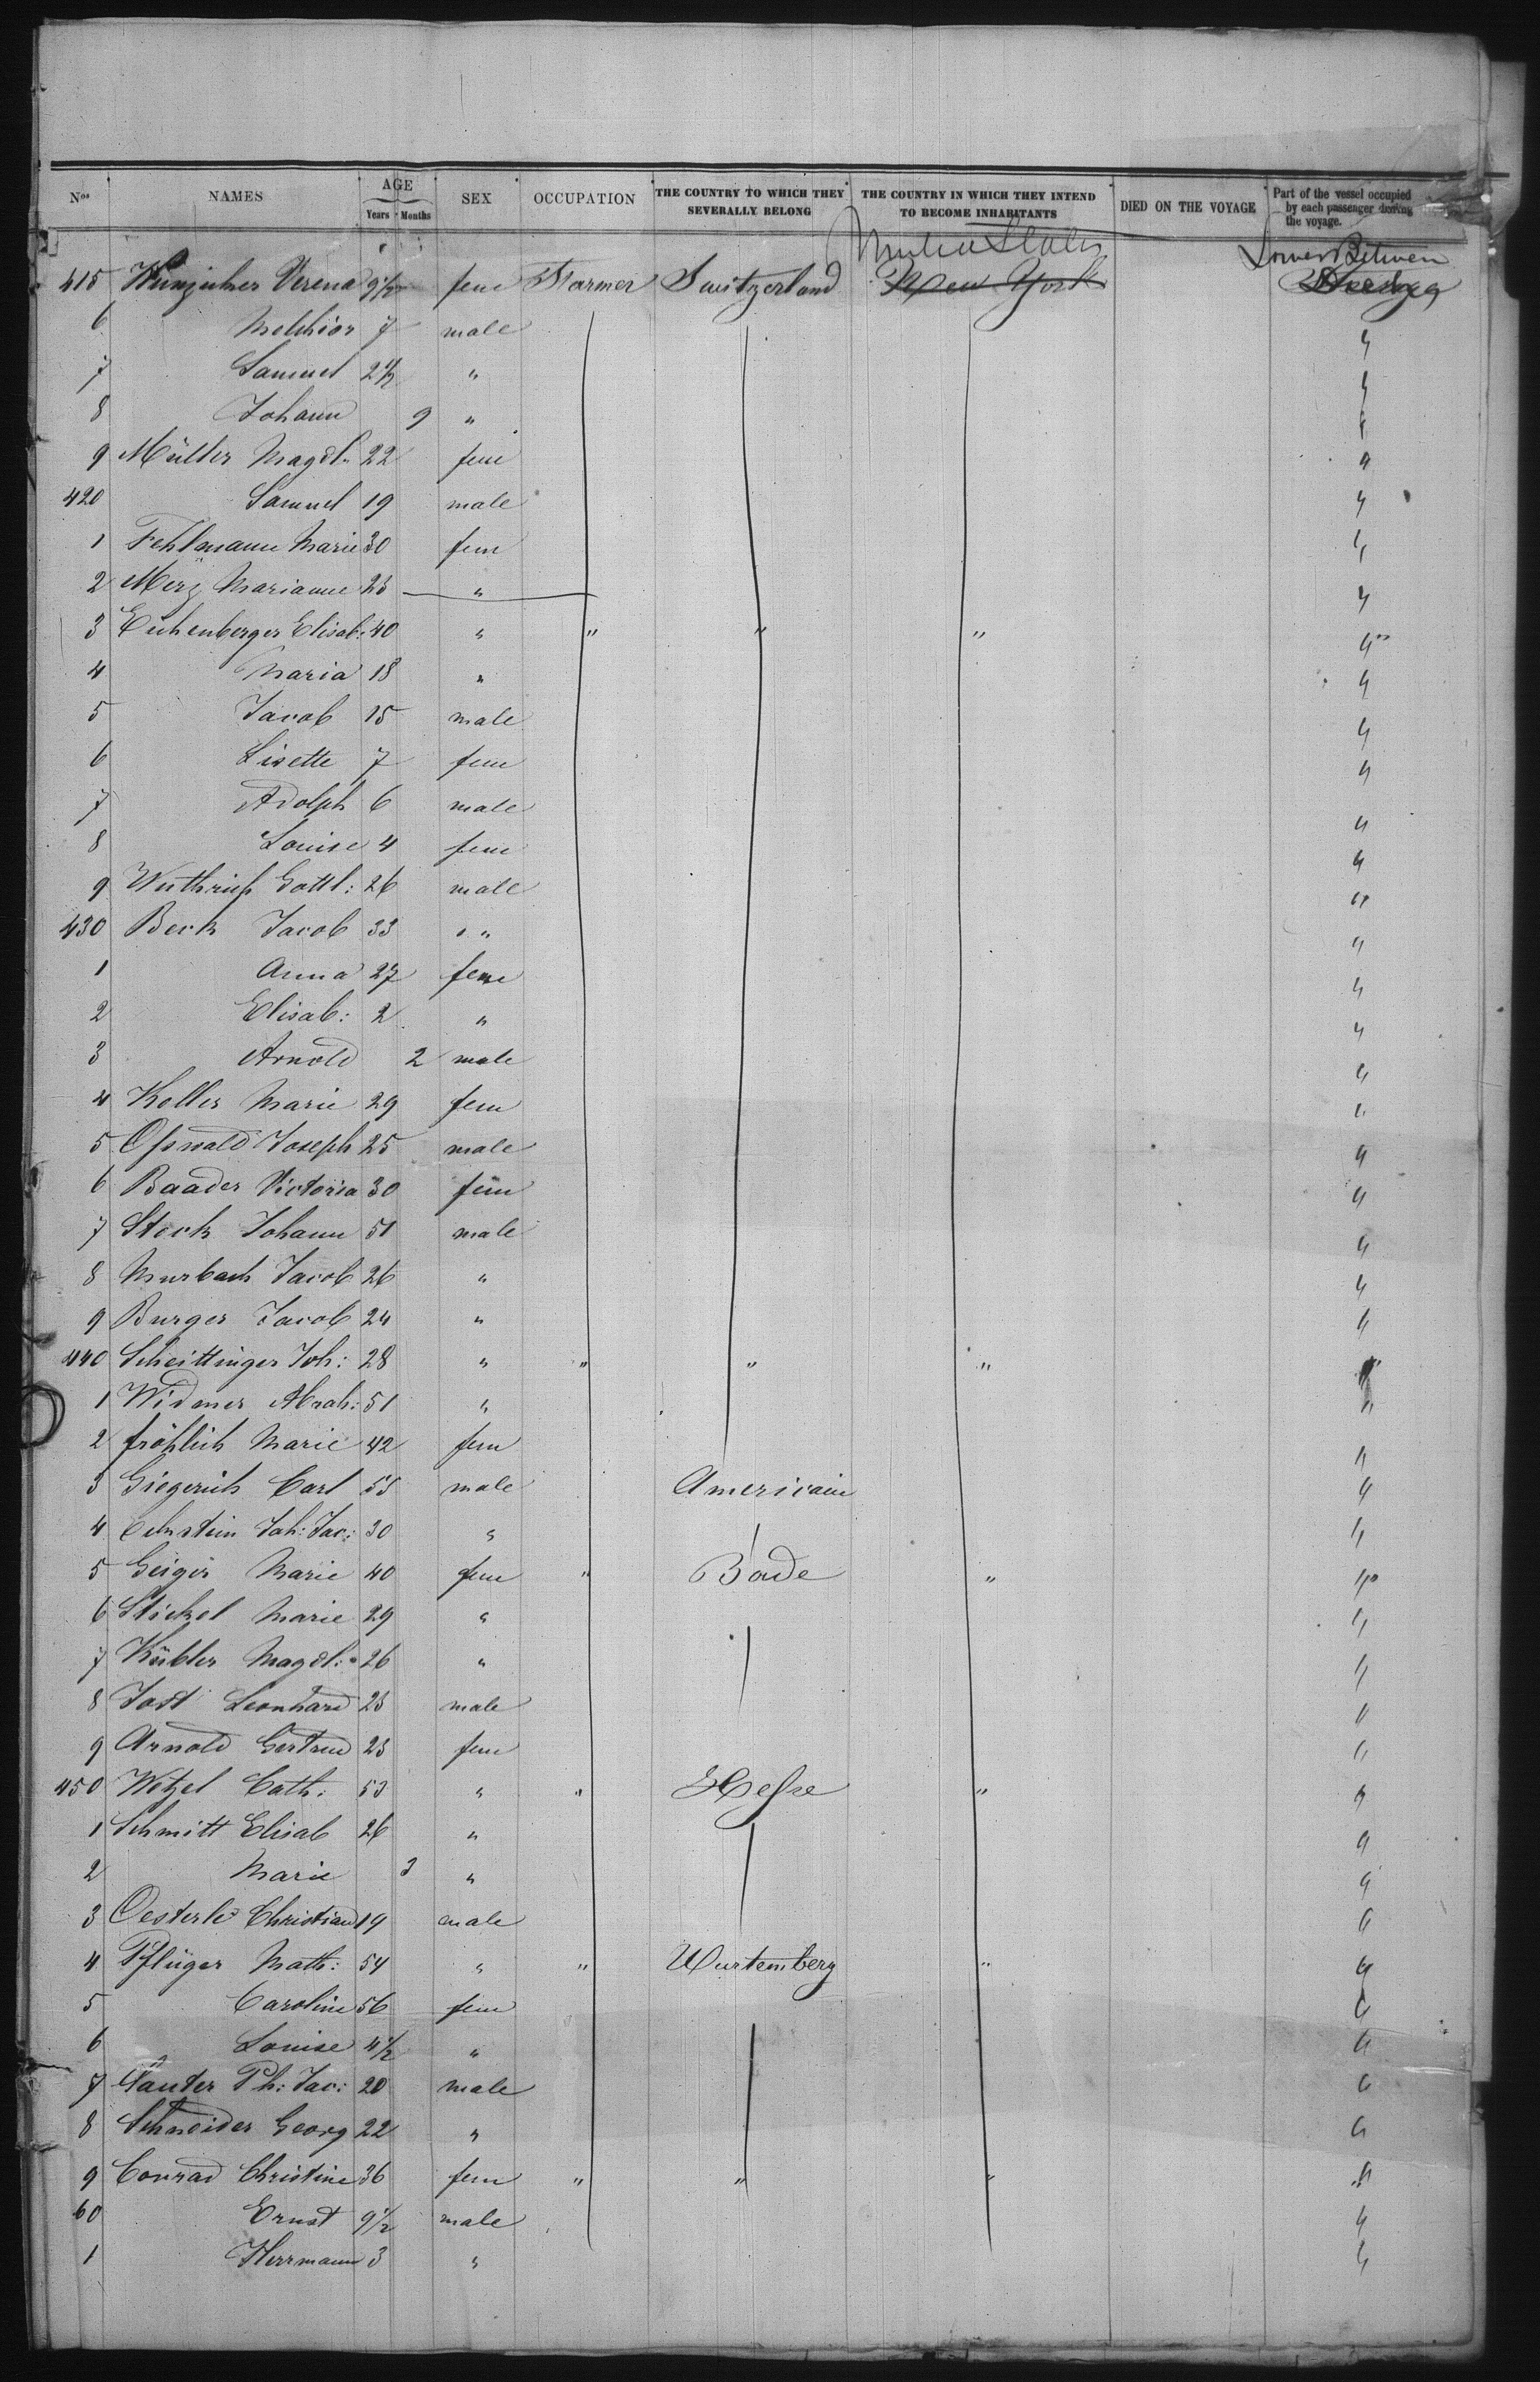 Nos NAMES AGE Years Months SEX OCCUPATION THE COUNTRY TO WHICH THEY SEVERALLY BELONG THE COUNTRY IN WHICH THEY INTEND TO BECOME INHABITANTS DIED ON THE VOYAGE Part of the vessel occupied by each passenger during the voyage.
United States Lower Between
415 Verena 9½ fem Farmer Switzerland New York
6 Melchior 7 male "
7 Samuel 2½ " "
8 Johann 9 " "
9 Müller Magdl. 22 fem "
420 Samuel 19 male "
1 Fehlmann Marie 30 fem "
2 Merz Marianne 23 " "
3 Eichenberger Elisab: 40 " " " " "
4 Maria 18 " "
5 Jacob 15 male "
6 Lisette 7 fem "
7 Adolph 6 male "
8 Louise 4 fem "
9 Wuthrich Gottl: 26 male "
430 Beck Jacob 33 " "
1 Anna 27 fem "
2 Elisab: 2 " "
3 Arnold 2 male "
4 Keller Marie 29 fem "
5 Oswald Joseph 25 male "
6 Baader Victoria 30 fem "
7 Stock Johann 51 male "
8 Murbach Jacob 26 " "
9 Burger Jacob 24 " "
440 Scheittinger Joh: 28 " " " " "
1 Widmer Abrah: 51 " "
2 fröhlich Marie 42 fem "
3 Giegerich Carl 55 male Americain "
4 Joh: Jac: 30 " "
5 Geiger Marie 40 fem " Bade " "
6 Stickel Marie 29 " "
7 Kübler Magdl: 26 " "
8 Jost Leonhard 23 male "
9 Arnold Gertrud 23 fem "
450 Wetzel Cath: 53 " " Hesse " "
1 Schmitt Elisab 26 " "
2 Marie 3 " "
3 Oesterle Christian 19 male "
4 Pflüger Math: 54 " " Wurtemberg " "
5 Caroline 56 fem "
6 Louise 4½ " "
7 Sauter Ph: Jac: 20 male "
8 Schneider Georg 22 " "
9 Conrad Christine 36 fem " " " "
60 Ernst 9½ male "
1 Herrmann 3 " "